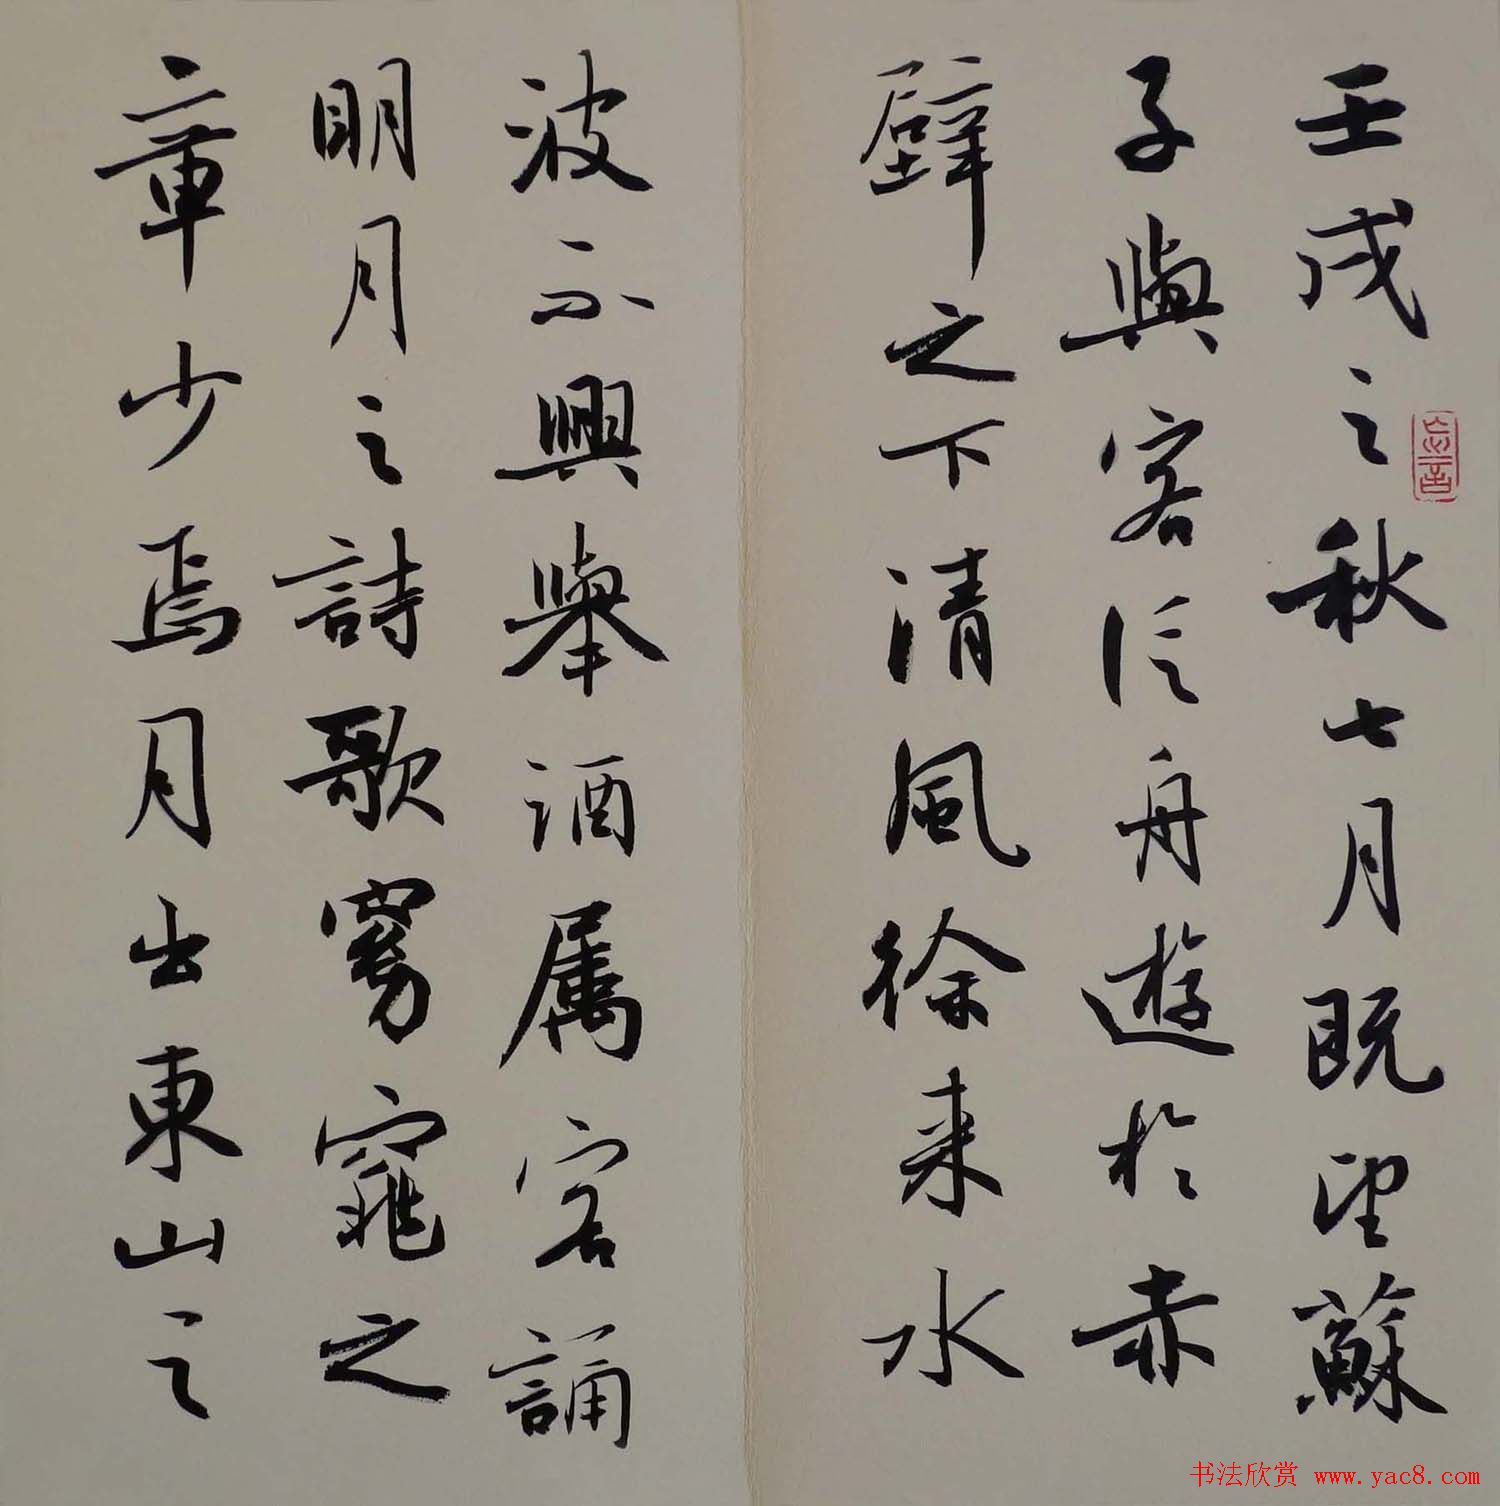 壬戌之秋七月既望蘇
子與客泛舟遊於赤
壁之下清風徐来水
波不興舉酒属客誦
明月之詩歌窈窕之
章少焉月出東山之
书法欣赏 www.yac8.com